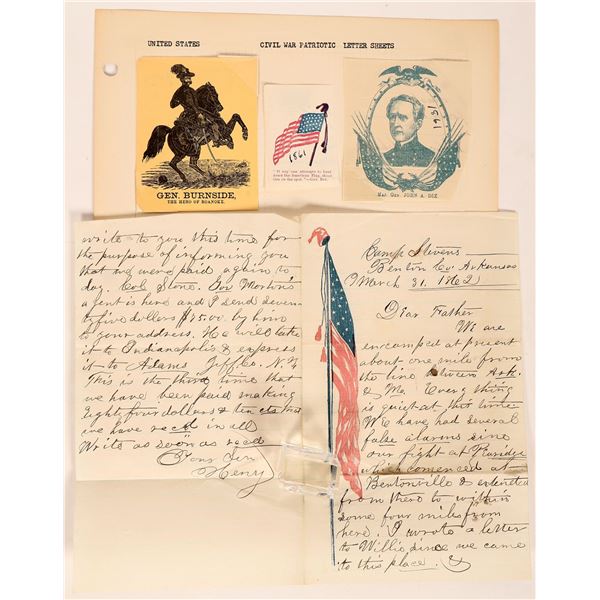 UNITED STATES
CIVIL WAR PATRIOTIC LETTER SHEETS
GEN. BURNSIDE,
THE HERO OF ROANOKE.
1861
"If any one attempts to haul
down the American Flag, shoot
him on the spot."—Gen. Dix.
1861
MAJ. GEN. JOHN A. DIX
Camp Stevens
Benton Co Arkansas
March 31. 1862
Dear Father
We are
encamped at present
about one mile from
the line between Ark.
& Mo. Every thing
is quiet at this time
We have had several
false alarms sinc
our fight at
which comenced at
Bentonville & extended
from there to within
some four miles from
here. I wrote a letter
to Willis since we came
to this place. &
write to you this time for
the purpose of informing you
that we were paid again to
day. Col Stone. Gov Morton's
agent is here and I send seven
ty five dollars $75.00. by him
to your address. He will take
it to Indianapolis & express
it to Adams Jeff. Co. N.Y
This is the third time that
we have been paid making
Eighty four dollars & ten cts that
we have recd in all
Write as soon as recd
Your Son
Henry